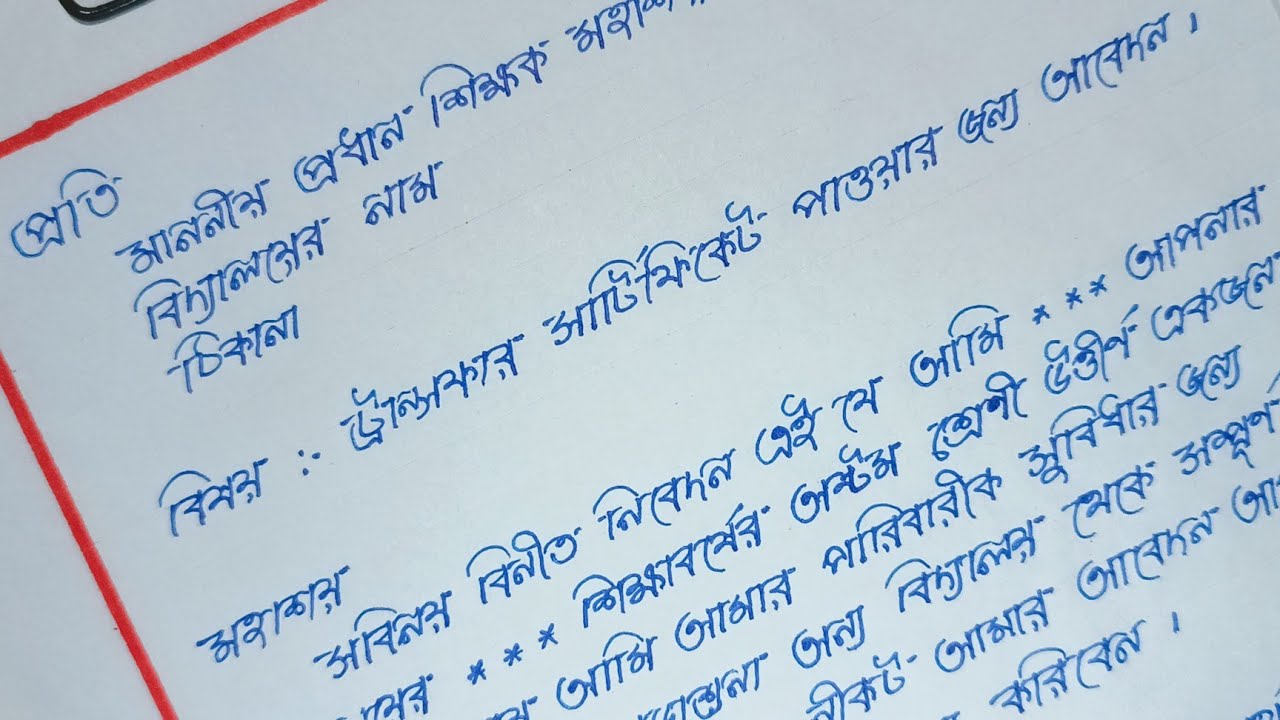 প্রতি
মাননীয় প্রধান শিক্ষক
বিদ্যালয়ের নাম
ঠিকানা
বিষয় :- ট্রান্সফার সার্টিফিকেট পাওয়ার জন্য আবেদন ।
মহাশয়
সবিনয় বিনীত নিবেদন এই যে আমি * * * আপনার
* * * শিক্ষাবর্ষের অষ্টম শ্রেণী উত্তীর্ণ একজন
আমি আমার পারিবারীক সুবিধার জন্য
অন্য বিদ্যালয় থেকে সম্পূর্ণ
নীকট আমার আবেদন
করিবেন ।